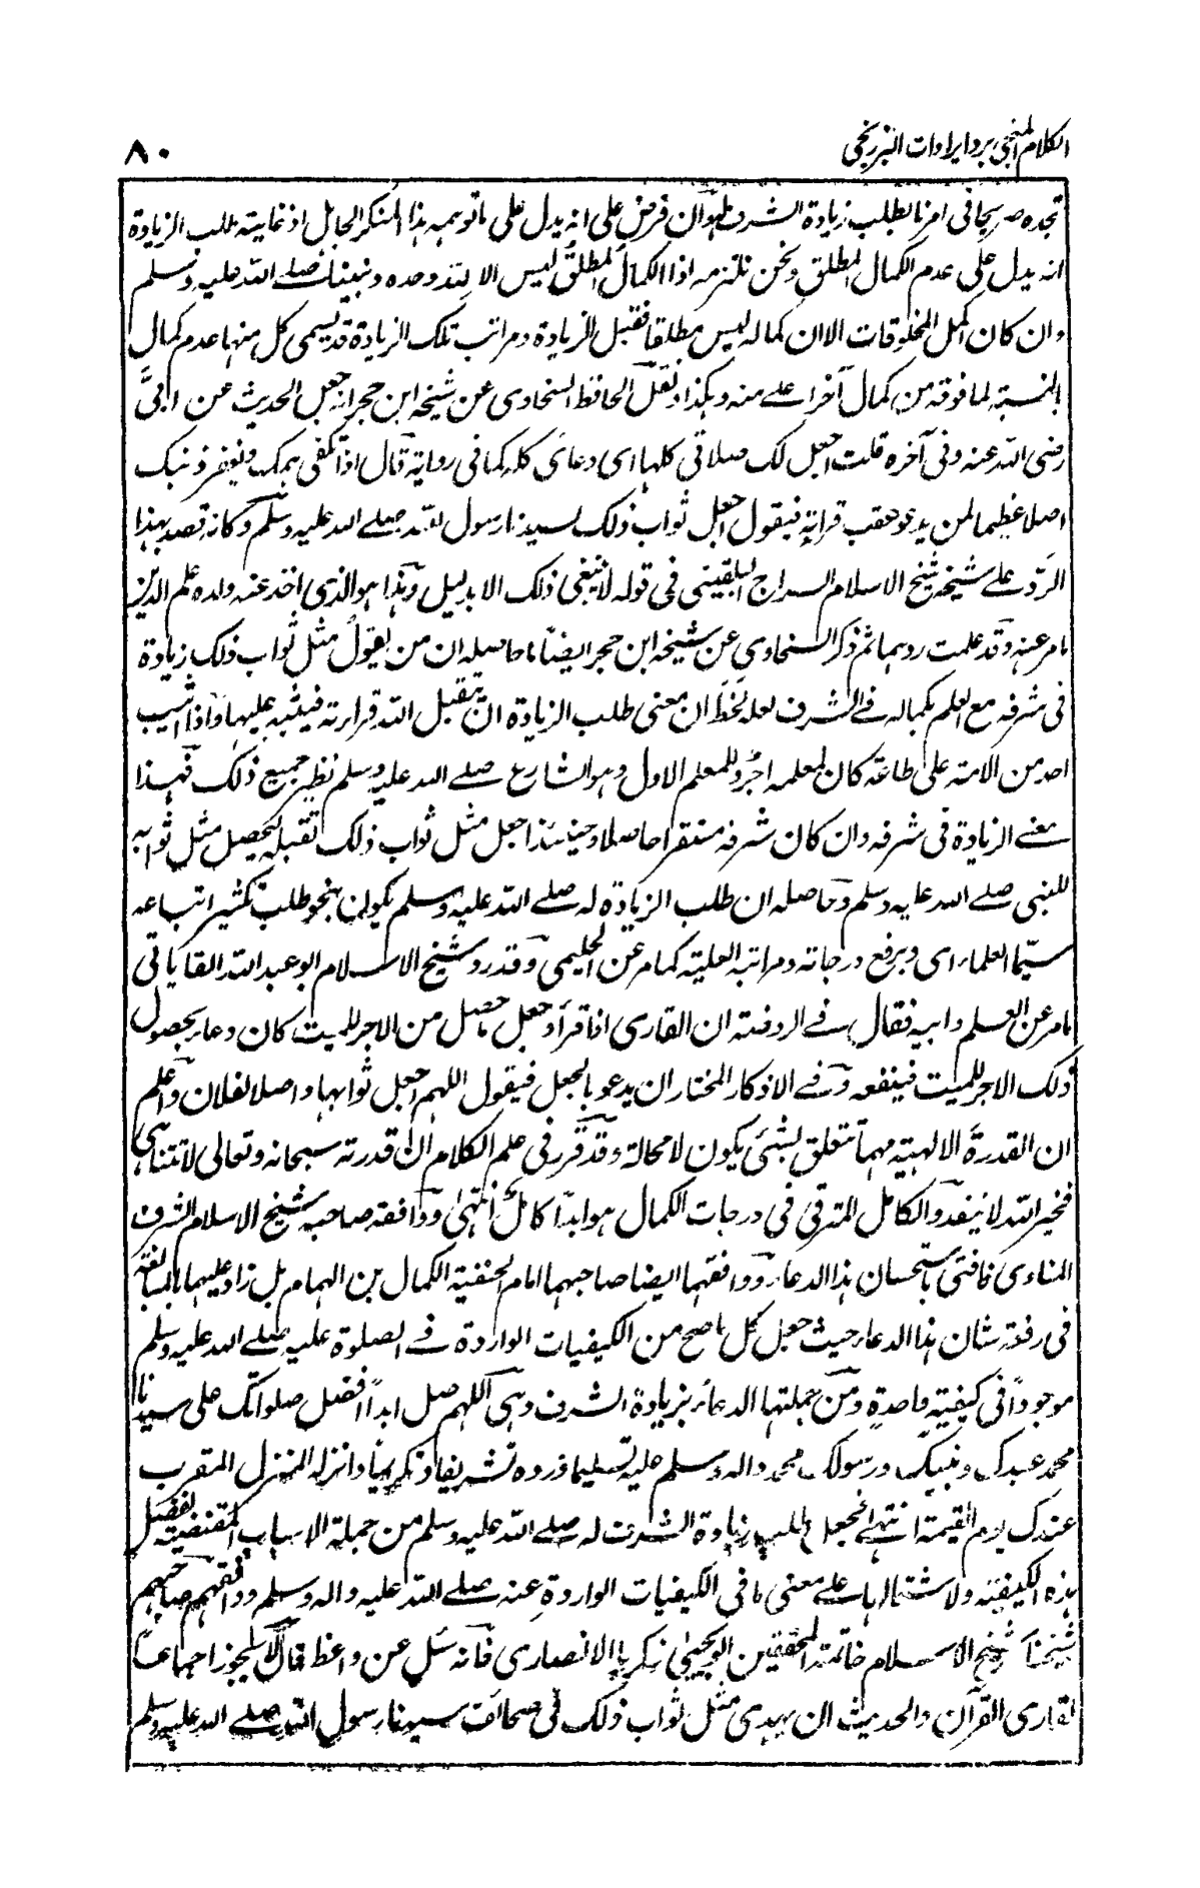 الكلام المنجي برد ايرادات البرزنجي
٨٠
تجده صريحا في امرنا بطلب زيادة الشرف له وان فرض على انه يدل على ما توهمه هذا المنكر الجاهل اذ غاية طلب الزيادة
انه يدل على عدم الكمال المطلق ونحن نلتزمه اذ الكمال المطلق ليس الا لله وحده ونبينا صلى الله عليه وسلم
وان كان اكمل المخلوقات الا ان كماله ليس مطلقا فقبل الزيادة ومراتب تلك الزيادة قد يسمى كل منها عدم كمال
بالنسبة لما فوقه من كمال آخر اعلى منه وهكذا ونقل الحافظ السخاوى عن شيخه ابن حجر انه جعل الحديث عن ابيّ
رضى الله عنه وفى آخره قلت اجعل لك صلاتى كلها اى دعائى كله كما فى رواية قال اذا تكفى همك ويغفر ذنبك
اصلا عظيما لمن يدعو عقب قراته فيقول اجعل ثواب ذلك لسيدنا رسول الله صلى الله عليه وسلم وكانه قصد بهذا
الرد على شيخه شيخ الاسلام السراج البلقينى فى قوله لا ينبغى ذلك الا بدليل وهذا هو الذى اخذ عنه ولده علم الدين
مامر عنه وقد علمت ردهما ثم ذكر السخاوى عن شيخه ابن حجر ايضا ما حاصله ان من يقول مثل ثواب ذلك زيادة
فى شرفه مع العلم بكماله فى الشرف لعله لحظ ان معنى طلب الزيادة ان يتقبل الله قراءته فيثيبه عليها واذا اثيب
احد من الامة على طاعة كان لمعلمه اجر وللمعلم الاول وهو الشارع صلى الله عليه وسلم نظير جميع ذلك فهذا
معنى الزيادة فى شرفه وان كان شرفه مستقرا حاصلا وحينئذ اجعل مثل ثواب ذلك تقبله ليحصل مثل ثوابه
للنبى صلى الله عليه وسلم وحاصله ان طلب الزيادة له صلى الله عليه وسلم يكون بنحو طلب تكثير اتباعه
سيما العلماء اى وبرفع درجاته ومراتبه العلية كما مر عن الحليمى وقد رد شيخ الاسلام ابو عبد الله القاياتى
مامر عن العلم وابيه فقال فى الروضة ان القارى اذا قرأ وجعل ما حصل من الاجر للميت كان دعاء بحصول
ذلك الاجر للميت فينفعه وفى الاذكار المختار ان يدعو بالجعل فيقول اللهم اجعل ثوابها واصلا لفلان واعلم
ان القدرة الالهية مهما تتعلق بشئ يكون لا محالة وقد قرر فى علم الكلام ان قدرته سبحانه وتعالى لا تتناهى
فخير الله لا ينفد والكامل المترقى فى درجات الكمال هو ابدا كامل انتهى ووافقه صاحبه شيخ الاسلام الشرف
المناوى فافتى باستحسان هذا الدعاء ووافقهما ايضا صاحبهما امام الحنفية الكمال بن الهمام بل زاد عليهما بالمبالغة
فى رفعة شان هذا الدعاء حيث جعل كل ما صح من الكيفيات الواردة فى الصلوة عليه صلى الله عليه وسلم
موجودا فى كيفية واحدة ومن جملتها الدعاء بزيادة الشرف وهى اللهم صل ابدا افضل صلواتك على سيدنا
محمد عبدك ونبيك ورسولك محمد واله وسلم عليه تسليما وزده تشريفا وتكريما وانزله المنزل المقرب
عندك يوم القيمة انتهى فجعل طلب زيادة الشرف له صلى الله عليه وسلم من جملة الاسباب المقتضية لفضل
هذه الكيفية ولاشتمالها على معنى ما فى الكيفيات الواردة عنه صلى الله عليه واله وسلم ووافقهم صاحبهم
شيخنا شيخ الاسلام خاتمة المحققين ابو يحيى زكريا الانصارى فانه سئل عن واعظ قال لا يجوز اجماعا
لقارى القرآن والحديث ان يهدى مثل ثواب ذلك فى صحائف سيدنا رسول الله صلى الله عليه وسلم